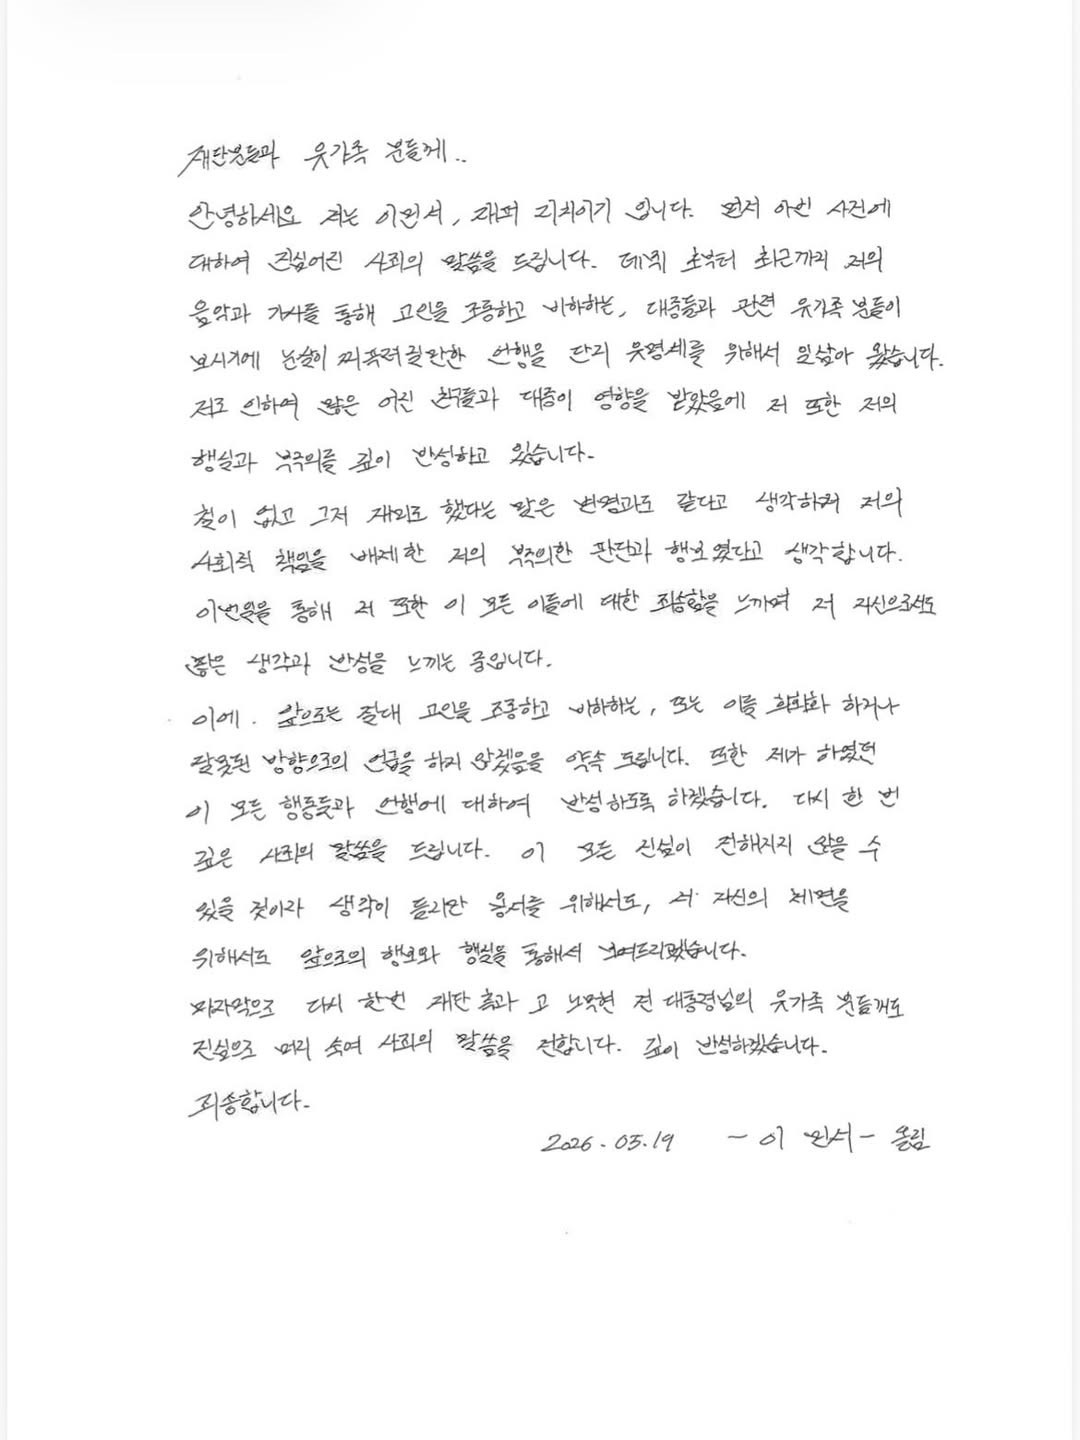 재단분들과 유가족 분들께..
안녕하세요 저는 이민서, 래퍼 리치이기 입니다. 먼저 이번 사건에
대하여 진심어린 사죄의 말씀을 드립니다. 데뷔 초부터 최근까지 저의
음악과 가사를 통해 고인을 조롱하고 비하하는, 대중들과 관련 유가족 분들이
보시기에 눈살이 찌푸려질만한 언행을 단지 유명세를 위해서 일삼아 왔습니다.
저로 인하여 많은 어린 친구들과 대중이 영향을 받았음에 저 또한 저의
행실과 부주의를 깊이 반성하고 있습니다.
철이 없고 그저 재미로 했다는 말은 변명과도 같다고 생각하며 저의
사회적 책임을 배제한 저의 부주의한 판단과 행보였다고 생각합니다.
이번일을 통해 저 또한 이 모든 이들에 대한 죄송함을 느끼며 저 자신으로서도
많은 생각과 반성을 느끼는 중입니다.
이에. 앞으로는 절대 고인을 조롱하고 비하하는, 또는 이를 희화화 하거나
잘못된 방향으로의 언급을 하지 않겠음을 약속 드립니다. 또한 제가 하였던
이 모든 행동들과 언행에 대하여 반성하도록 하겠습니다. 다시 한 번
깊은 사죄의 말씀을 드립니다. 이 모든 진심이 전해지지 않을 수
있을 것이라 생각이 들지만 용서를 위해서도, 저 자신의 체면을
위해서도 앞으로의 행보와 행실을 통해서 보여드리겠습니다.
마지막으로 다시 한번 재단 측과 고 노무현 전 대통령님의 유가족 분들께도
진심으로 머리 숙여 사죄의 말씀을 전합니다. 깊이 반성하겠습니다.
죄송합니다.
2026.05.19 - 이 민서 - 올림